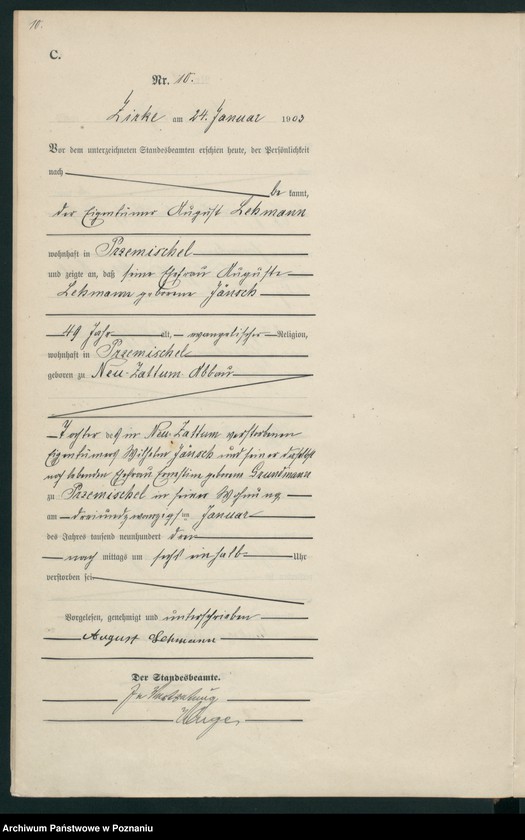 10.
C.
Nr. 10.
Zirke am 24. Januar 1903
Vor dem unterzeichneten Standesbeamten erschien heute, der Persönlichkeit
nach
be kannt,
der Eigentümer August Lehmann
wohnhaft in Przemischel
und zeigte an, daß seine Ehefrau Auguste
Lehmann geborene Jänsch
49 Jahr alt, evangelischer Religion,
wohnhaft in Przemischel
geboren zu Neu-Zattum Abbau
Tochter des in Neu-Zattum verstorbenen
Eigentümers Wilhelm Jänsch und seiner daselbst
noch lebenden Ehefrau Ernestine geborene
zu Przemischel in seiner Wohnung
am dreiundzwanzigsten Januar
des Jahres tausend neunhundert drei
nach mittags um sechs einhalb Uhr
verstorben sei.
Vorgelesen, genehmigt und unterschrieben
August Lehmann
Der Standesbeamte.
In Vertretung
Archiwum Państwowe w Poznaniu